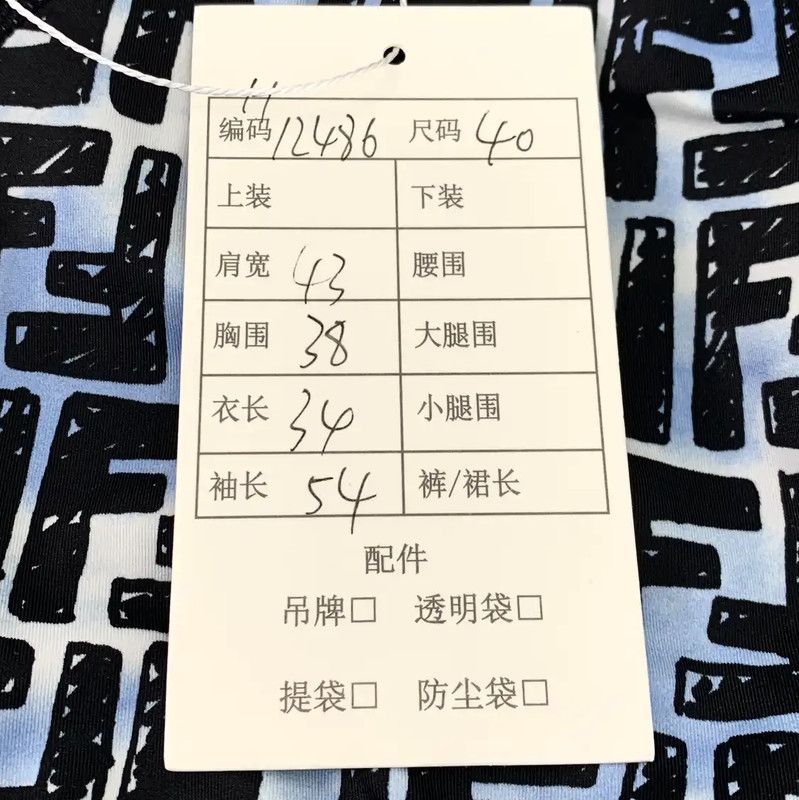 11
编码 12486 尺码 40
上装 下装
肩宽 43 腰围
胸围 38 大腿围
衣长 34 小腿围
袖长 54 裤/裙长
配件
吊牌□ 透明袋□
提袋□ 防尘袋□